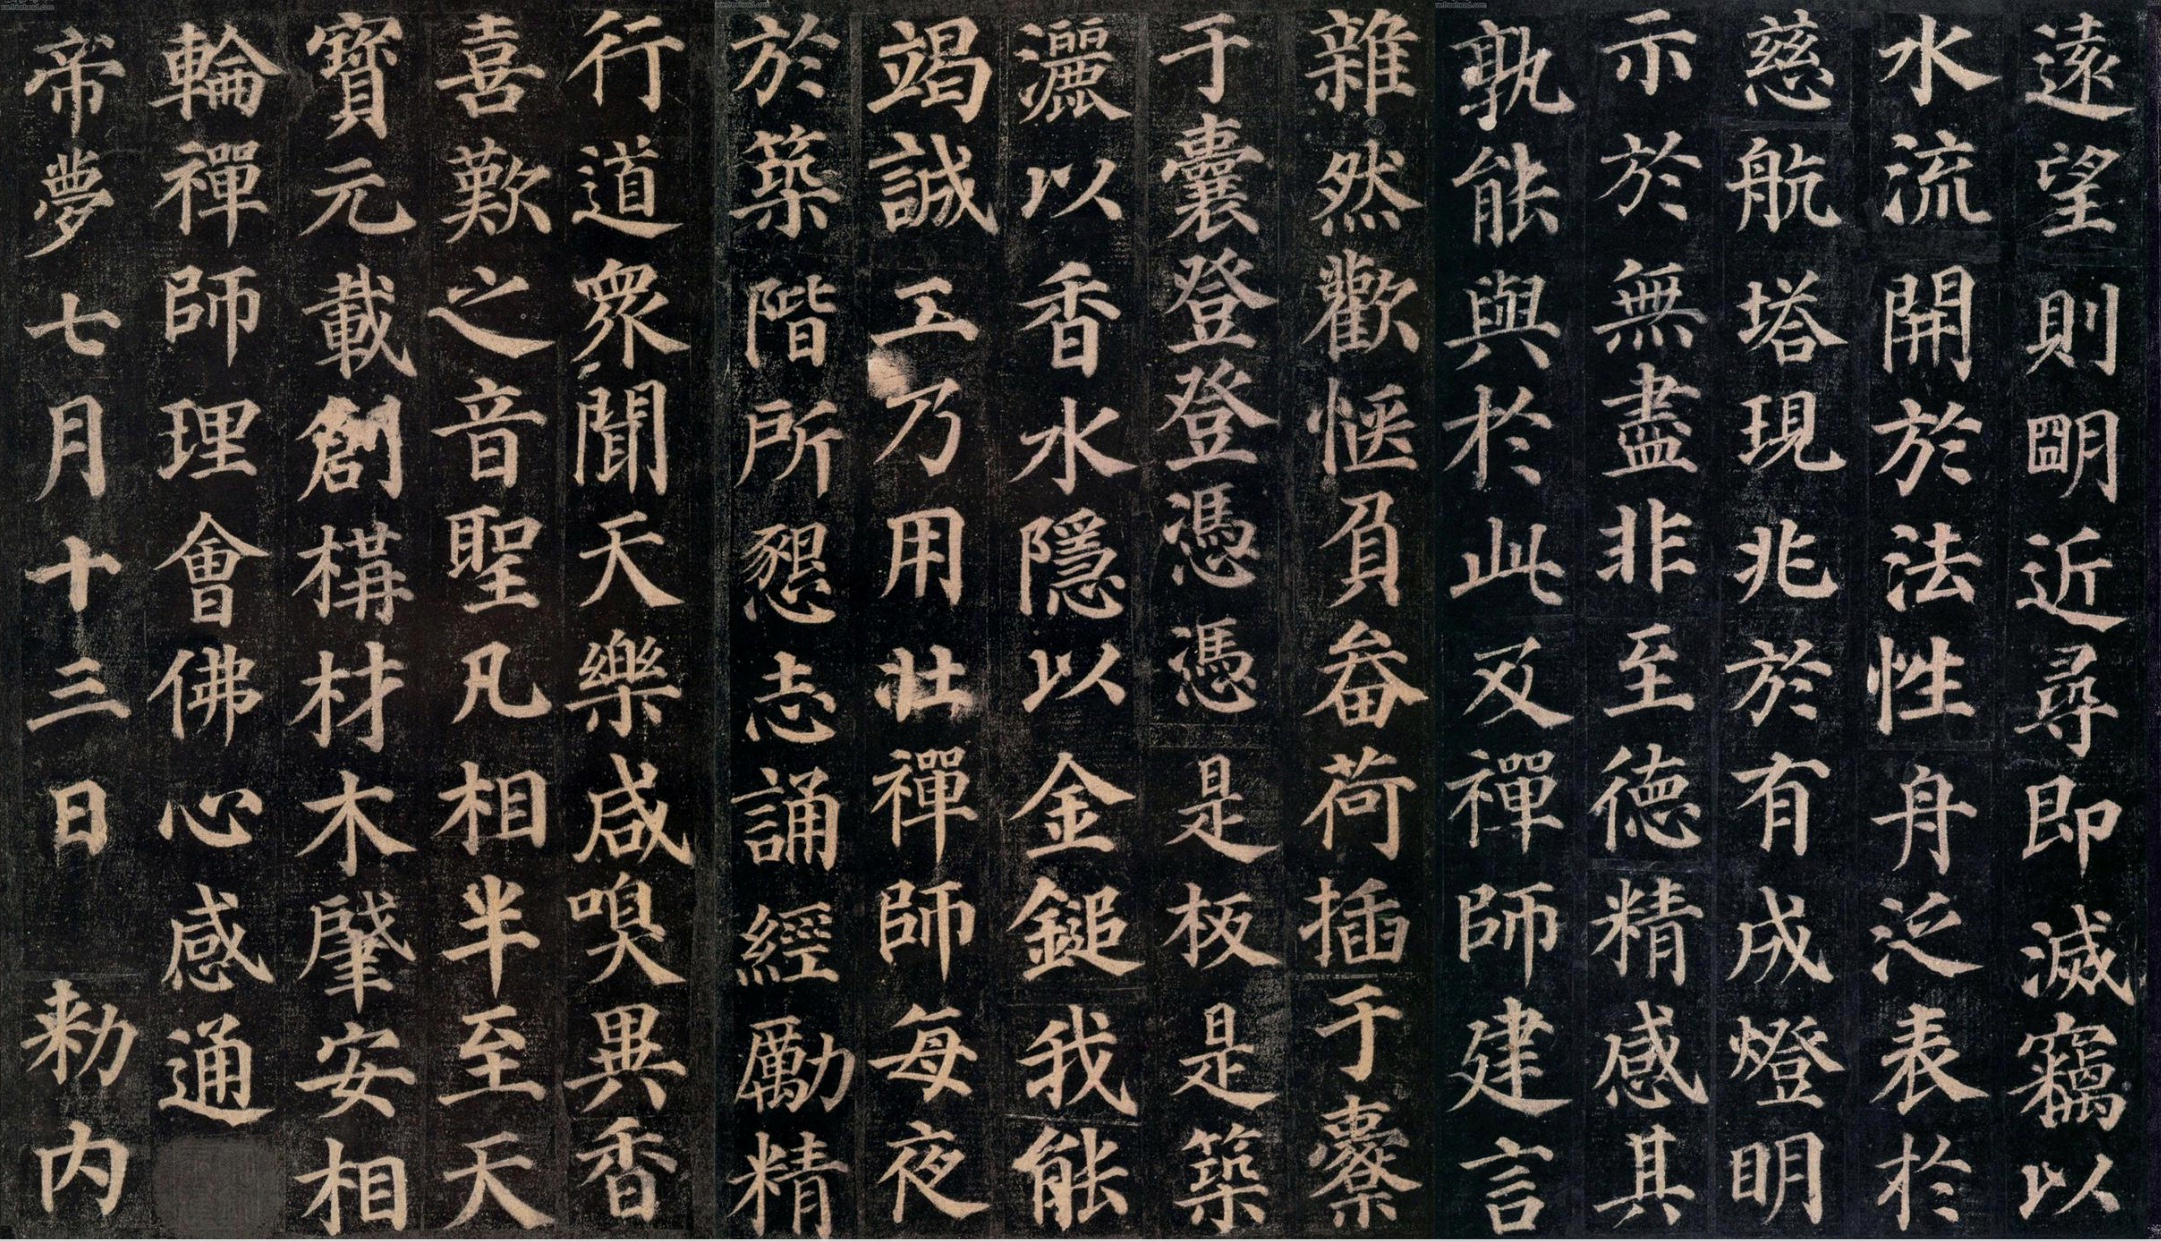 遠望則朙近尋即滅竊以
水流開於法性舟泛表於
慈航塔現兆於有成燈明
示於無盡非至德精感其
孰能與於此及禪師建言
雜然歡愜負畚荷插于橐
于囊登登憑憑是板是築
灑以香水隱以金鎚我能
竭誠工乃用壯禪師每夜
於築階所懇志誦經勵精
行道衆聞天樂咸嗅異香
喜歎之音聖凡相半至天
寶元載創構材木肇安相
輪禪師理會佛心感通
帝夢七月十三日 勑内